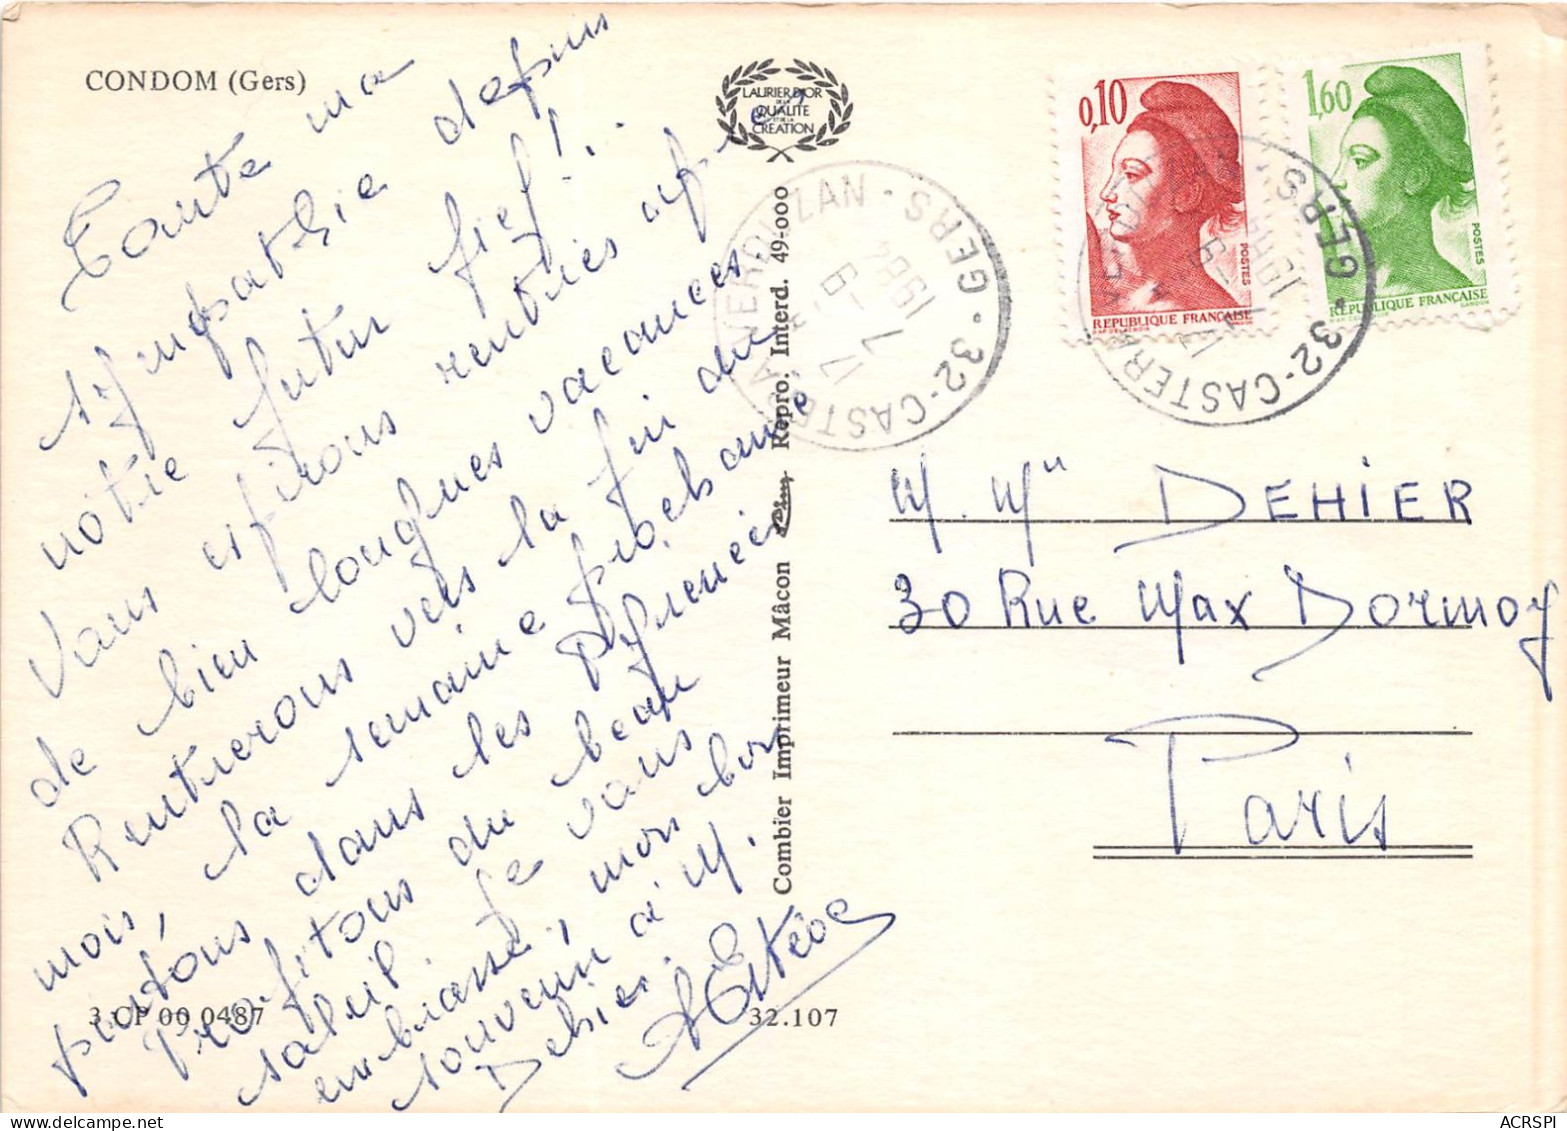 CONDOM (Gers)
LAURIER D'OR
DE LA
QUALITÉ
ET DE LA
CRÉATION
Toute ma
sympathie depuis
notre futur fief!
Vous espérons rentrés après
de bien longues vacances.
Rentrerons vers la fin du
mois, la semaine prochaine
partons dans les Pyrénées
Profitons du beau
soleil. Je vous
embrasse, mon bon
souvenir à M.
Dehier.
3 CP 00 0487
32.107
Combier Imprimeur Mâcon Repro. Interd. 49-000
0,10
POSTES
RÉPUBLIQUE FRANÇAISE
1,60
POSTES
RÉPUBLIQUE FRANÇAISE
GANDON
32-CASTERA VEROUZAN · GERS
17 -9
1984
32-CASTERA · GERS
M. Mme DEHIER
30 Rue Max Dormoy
Paris
ACRSPI